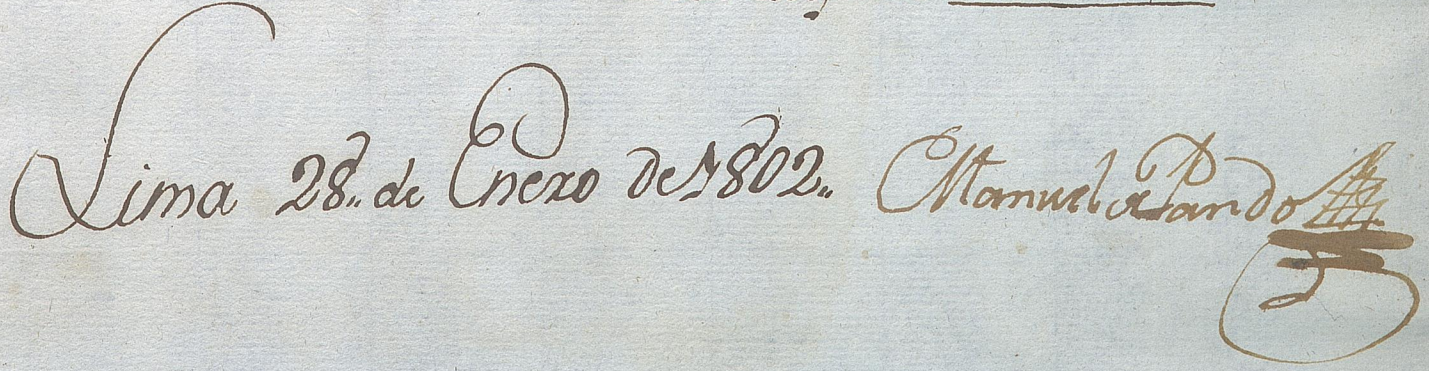 Lima 28,, de Enero de 1802,, Manuel de Pando